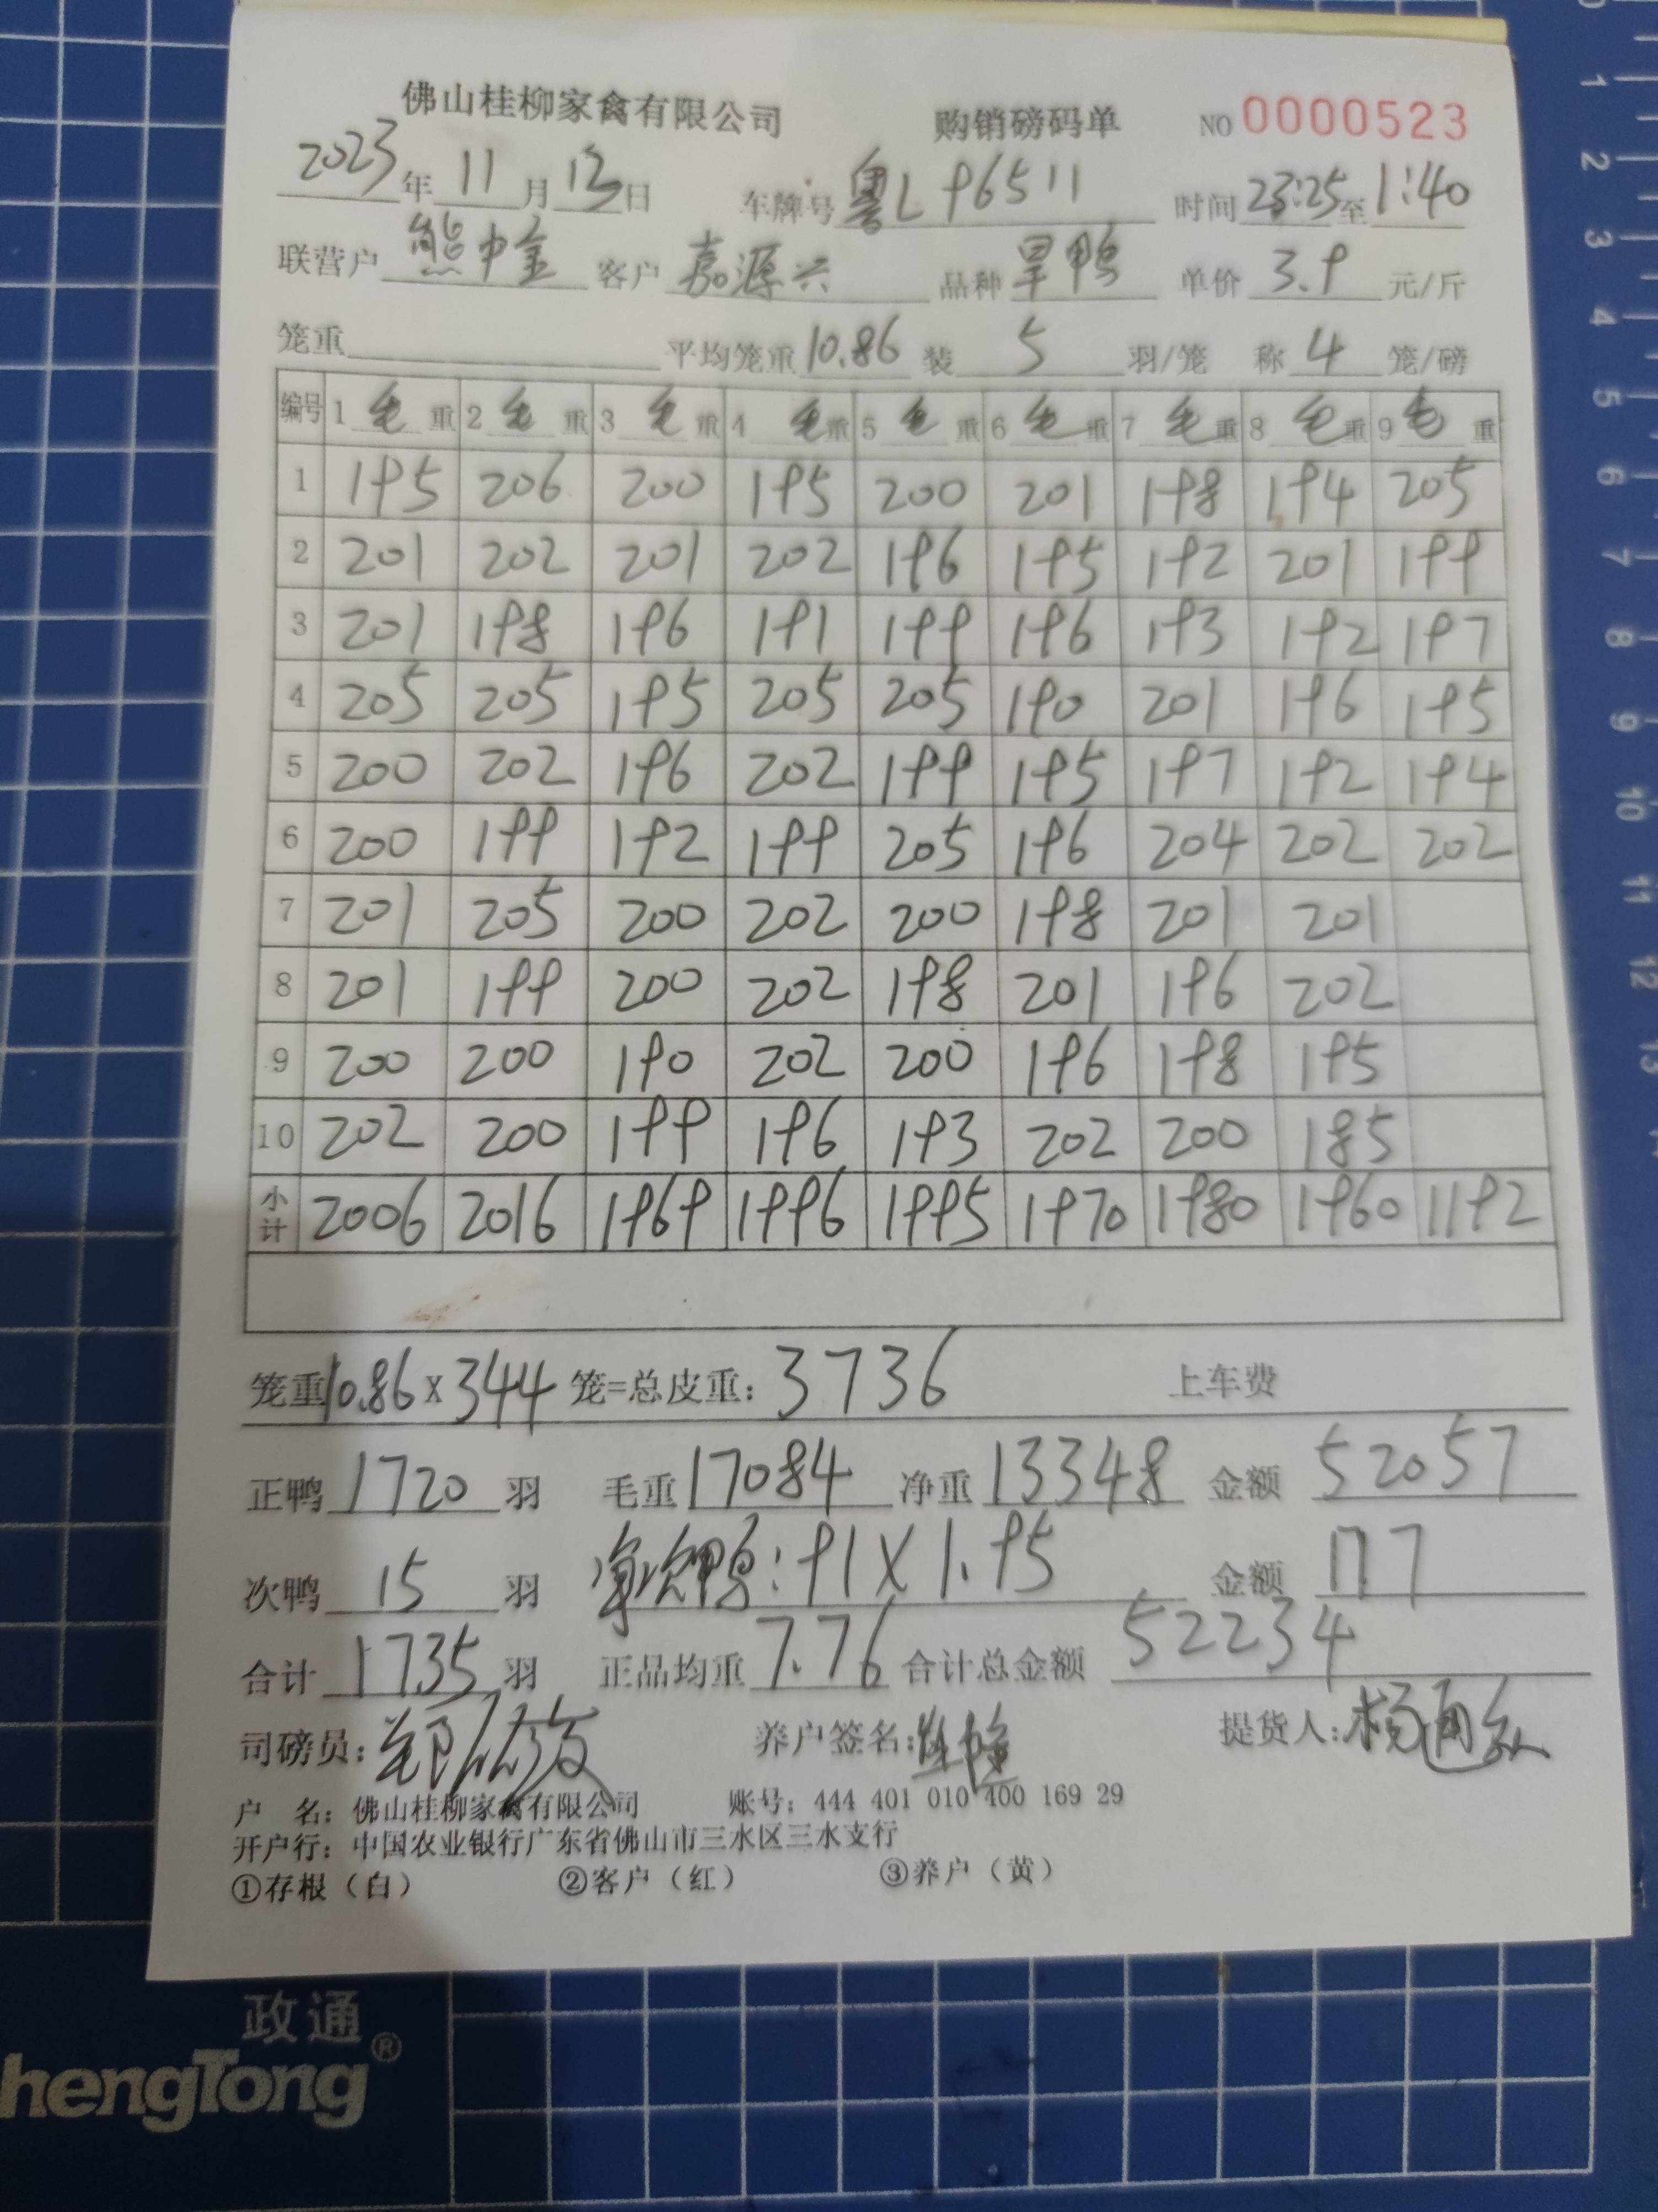 佛山桂柳家禽有限公司 购销磅码单 NO 0000523
2023年11月13日 车牌号 粤L96511 时间 23:25至1:40
联营户 熊中金 客户 嘉源兴 品种 旱鸭 单价 3.9 元/斤
笼重 平均笼重 10.86 装 5 羽/笼 称 4 笼/磅
编号 1 毛重 2 毛重 3 毛重 4 毛重 5 毛重 6 毛重 7 毛重 8 毛重 9 毛重
1 195 206 200 195 200 201 198 194 205
2 201 202 201 202 196 195 192 201 199
3 201 198 196 191 199 196 193 192 197
4 205 205 195 205 205 190 201 196 195
5 200 202 196 202 199 195 197 192 194
6 200 199 192 199 205 196 204 202 202
7 201 205 200 202 200 198 201 201
8 201 199 200 202 198 201 196 202
9 200 200 190 202 200 196 198 195
10 202 200 199 196 193 202 200 185
小计 2006 2016 1969 1996 1995 1970 1980 1960 1192
笼重10.86x344笼=总皮重:3736 上车费
正鸭 1720 羽 毛重 17084 净重 13348 金额 52057
次鸭 15 羽 次鸭:91X1.95 金额 177
合计 1735 羽 正品均重 7.76 合计总金额 52234
司磅员: 养户签名: 提货人:杨通
户 名:佛山桂柳家禽有限公司 账号:444 401 010 400 169 29
开户行:中国农业银行广东省佛山市三水区三水支行
①存根(白) ②客户(红) ③养户(黄)
政通
hengTong®
0
1
2
3
4
5
6
7
8
9
10
11
12
13